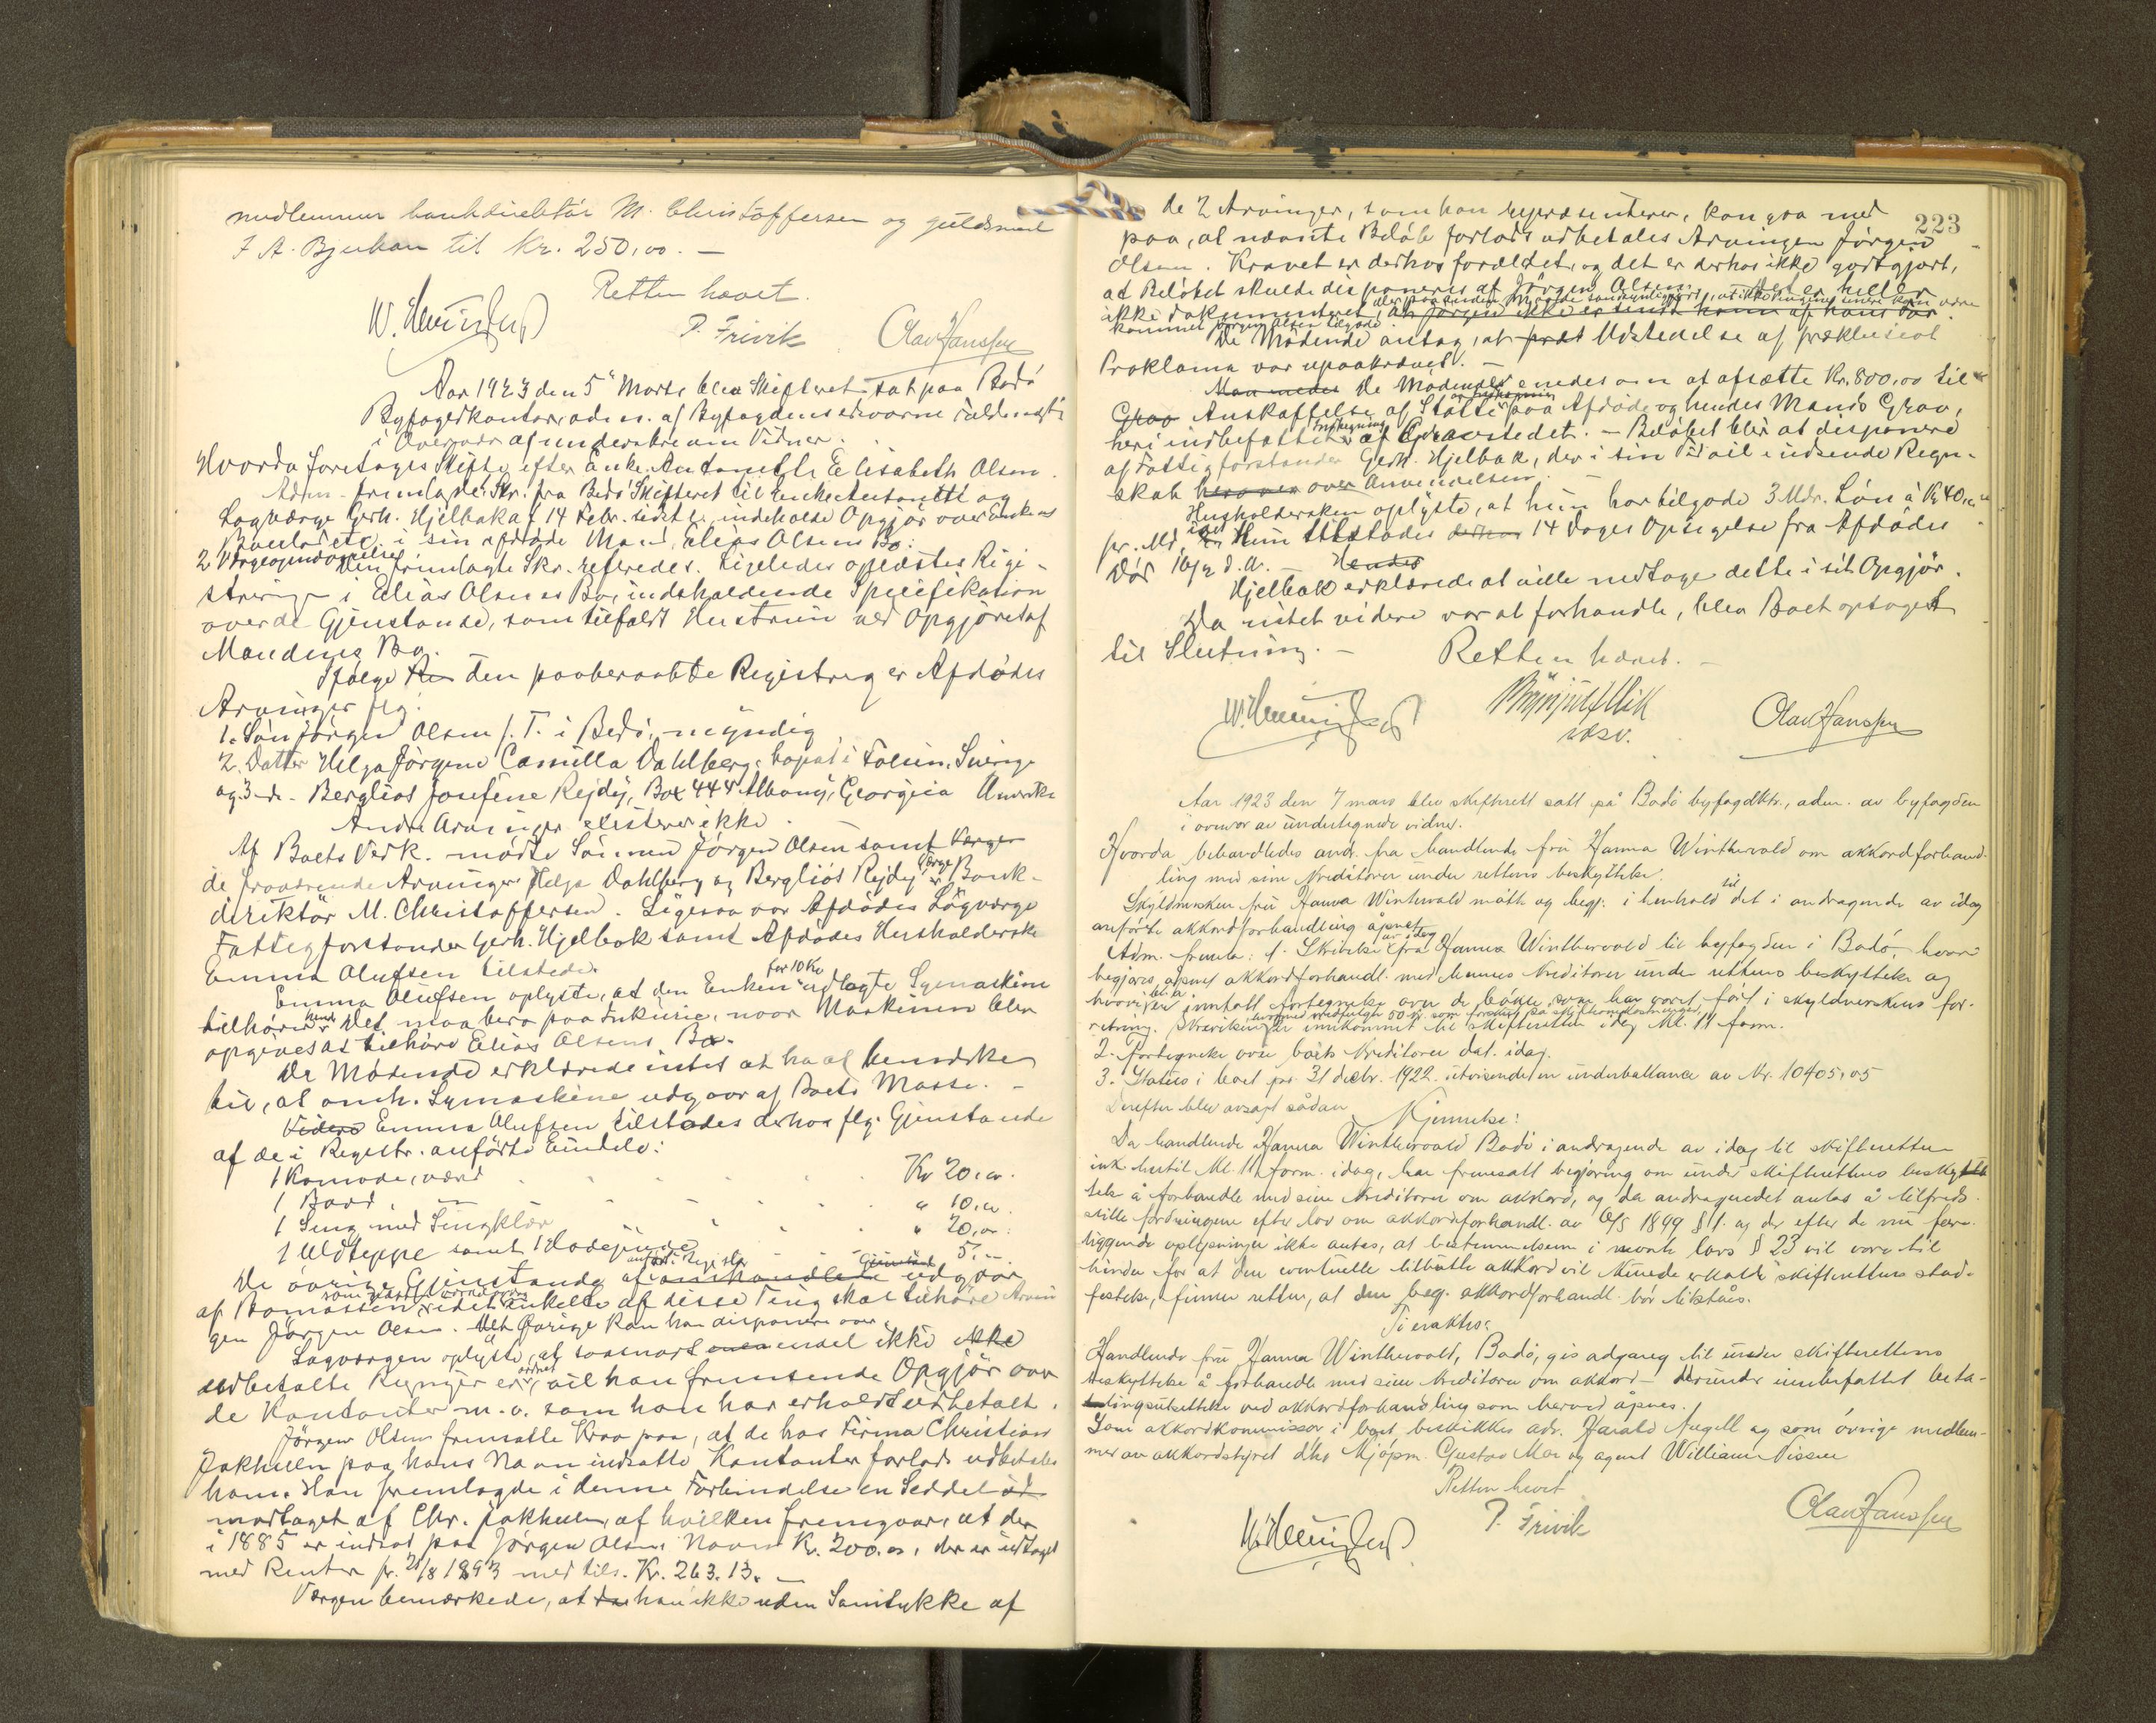 medlemmer bankdirektør M. Christoffersen og guldsmed
J. A. Bjerkan til Kr. 250,00. —
Retten hævet.
P. Frivik Olav Hanssen
Aar 1923 den 5 Marts blev Skifteret sat paa Bodø
Byfogedkontor, adm. af Byfogdens edsvorne Fuldmægtig
i Overvær af underskrevne Vidner.
Hvorda foretages Skifte efter Enke Antonette Elisabeth Olsen.
Adm. fremlagde: Skr. fra Bodø Skifteret til Enke Antonette og
Lagværge Gerh. Hjelbak af 14 Febr. sidstl. indeholde Opgjør over Enkens
Boeslod etc. i sin afdøde Mand, Elias Olsens Bo.
2 Værgeopnævnelser
Den fremlagte Skr. refereredes. Ligeledes oplæstes Regi-
strering i Elias Olsens Bo, indeholdende Specifikation
over de Gjenstande, som tilfaldt Hustruen ved Opgjøret af
Mandens Bo.
Ifølge den paaberaabte Registreg er Afdødes
Arvinger flg:
1. Søn Jørgen Olsen f. T. i Bodø, myndig
2. Datter Helga Jørgine Camilla Dahlberg, bopat i Falun, Sverige
og 3 do. Bergliot Josefine Rejdy, Box 444 Albany, Georgia Amerika
Andre Arvinger existerer ikke.
Af Boets Vedk. mødte Sønnen Jørgen Olsen samt Værger
de fraværende Arvinger Helga Dahlberg og Bergliot Rejdy's Værge Bank-
direktør M. Christoffersen. Ligesaa var Afdødes Lagværge
Fattigforstander Gerh. Hjelbak samt Afdødes Husholderske
Emma Olufsen tilstede.
Emma Olufsen oplyste, at den Enken for 10 Kr udlagte Symaskine
tilhører hende. Det maa bero paa Inkurie, naar Maskinen blev
opgivet at tilhøre Elias Olsens Bo.
De Mødende erklærede intet at ha at bemærke
til, at omh. Symaskine udgaar af Boets Masse. —
Videre Emma Olufsen tilstodes derhos flg. Gjenstande
af de i Registr. anførte Eiendele:
1 Komode, værd Kr 20,00.
1 Bord, — " 10,00.
1 Seng med Sengklær " 20,00.
1 Uldteppe samt 1 Hodepude — 5.—
De øvrige Gjenstande anført i Registr. udgaar
af Bomassen, idet enkelte af disse Ting skal tilhøre Arvin
gen Jørgen Olsen. Det Øvrige kan han disponere over.
Lagværgen oplyste, at saasnart endel ikke
udbetalte Regninger er ordnet, vil han fremsende Opgjør over
de Kontanter m. v. som han har erholdt udbetalt.
Jørgen Olsen fremsatte Krav paa, at de hos Firma Christian
Jakhelln paa hans Navn indsatte Kontanter forlods udbetales
ham. Han fremlagde i denne Forbindelse en Seddel
modtaget af Chr. Jakhelln, af hvilken fremgaar, at der
i 1885 er indsat paa Jørgen Olsens Navn Kr. 200.00, der er udtaget
med Renter pr. 21/8 1893 med tils. Kr. 263.13. —
Værgen bemærkede, at han ikke uden Samtykke af
223
de 2 Arvinger, som han repræsenterer, kan gaa med
paa, at nævnte Beløb forlods udbetales Arvingen Jørgen
Olsen. Kravet er derhos forældet, og det er derhos ikke godtgjort,
at Beløbet skulde disponeres af Jørgen Olsen. Det er heller
ikke dokumenteret, eller paa anden Maade sandsynliggjort, at ikke Pengene senere kan være
kommet Jørgen Olsen tilgode.
De Mødende antog, at Udstedelse af præklusivt
Proklama var upaakrævet. —
De Mødende enedes om at afsætte Kr. 800,00 til
Anskaffelse af Støtte paa Afdøde og hendes Mands Grav,
heri indbefattet Indhegning af Gravstedet. — Beløbet blir at disponere
af Fattigforstander Gerh. Hjelbak, der i sin Tid vil indsende Regn-
skab over Anvendelsen.
Husholdersken oplyste, at hun har tilgode 3 Mdr. Løn à Kr 40,00
pr. Md. idet Hun tilstodes 14 Dages Opsigelse fra Afdødes
Død 16/2 d. A. —
Hjelbak erklærede at ville medtage dette i sit Opgjør.
Da intet videre var at forhandle, blev Boet optaget
til Slutning. —
Retten hævet. —
Brynjulf Vik
Olav Hanssen
Aar 1923 den 7 mars blev skifterett satt på Bodø byfogdktr., adm. av byfogden
i overvær av undertegnede vidner.
Hvorda behandledes andr. fra handlende fru Hanna Wintherwold om akkordforhand-
ling med sine kreditorer under rettens beskyttelse.
Skyldnersken fru Hanna Wintherwold møtte og begj. i henhold til det i andragende av idag
anførte akkordforhandling åpnet.
Adm. fremla: 1. Skrivelse av idag fra Hanna Wintherwold til byfogden i Bodø, hvori
begjæres åpnet akkordforhandl. med hennes kreditorer under rettens beskyttelse og
hvori bl. a. er inntatt fortegnelse over de bøker, som har været ført i skyldnerskens for-
retning. Skrivelsen er innkommet til skifteretten idag kl. 11 form.
2. Fortegnelse over boets kreditorer dat. idag.
3. Status i boet pr. 31 decbr. 1922 utvisende en underballance av kr. 10405,05
Derefter blev avsagt sådan
Kjennelse:
Da handlende Hanna Wintherwold Bodø i andragende av idag til skifteretten
ink. hertil kl. 11 form. idag, har fremsatt begjæring om under skifterettens beskyt-
telse å forhandle med sine kreditorer om akkord, og da andragendet antas å tilfreds-
stille fordringene efter lov om akkordforhandl. av 6/5 1899 § 1. og da efter de nu fore-
liggende oplysninger ikke antas, at bestemmelsen i nævnte lovs § 23 vil være til
hinder for at den eventuelle tilbudte akkord vil kunde erholde skifterettens stad-
festelse, finner retten, at den beg. akkordforhandl. bør tilståes.
Ti eraktes:
Handlende fru Hanna Wintherwold, Bodø, gis adgang til under skifterettens
beskyttelse å forhandle med sine kreditorer om akkord — derunder innbefattet beta-
lingsutsettelse ved akkordforhandling som herved åpnes.
Som akkordkommissær i boet beskikkes adv. Harald Angell og som øvrige medlem-
mer av akkordstyret dhr. Kjøpm. Gustav Moe og agent William Nissen
Retten hevet
P. Frivik
Olav Hanssen